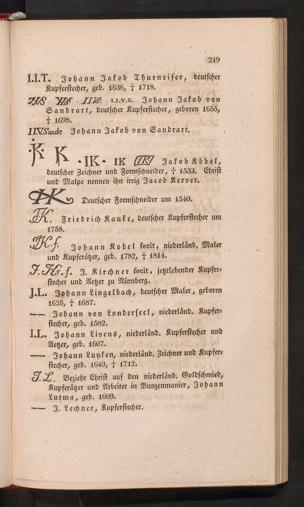 219
I.I.T. Johann Jakob Thurneiser, deutscher
Kupferstecher, geb. 1636, † 1718.
I.I.V.S. Johann Jakob von
Sandrart, deutscher Kupferstecher, geboren 1655,
† 1698.
IIVSandr: Johann Jakob von Sandrart.
K K ·IK· IK (IK) Jakob Köbel,
deutscher Zeichner und Formschneider, † 1533. Christ
und Malpe nennen ihn irrig Jacob Kerver.
Deutscher Formschneider um 1540.
JK. Friedrich Kauke, deutscher Kupferstecher um
1758.
JK f. Johann Kobel fecit, niederländ. Maler
und Kupferätzer, geb. 1782, † 1814.
J. K. f. J. Kirchner fecit, jetztlebender Kupfer-
stecher und Aetzer zu Nürnberg.
J.L. Johann Lingelbach, deutscher Maler, geboren
1625, † 1687.
—— Johann von Londerseel, niederländ. Kupfer-
stecher, geb. 1582.
I.L. Johann Livens, niederländ. Kupferstecher und
Aetzer, geb. 1607.
—— Johann Luyken, niederländ. Zeichner und Kupfer-
stecher, geb. 1649, † 1712.
J.L. Bezieht Christ auf den niederländ. Goldschmied,
Kupferätzer und Arbeiter in Bunzenmanier, Johann
Lutma, geb. 1609.
—— J. Lechner, Kupferstecher.